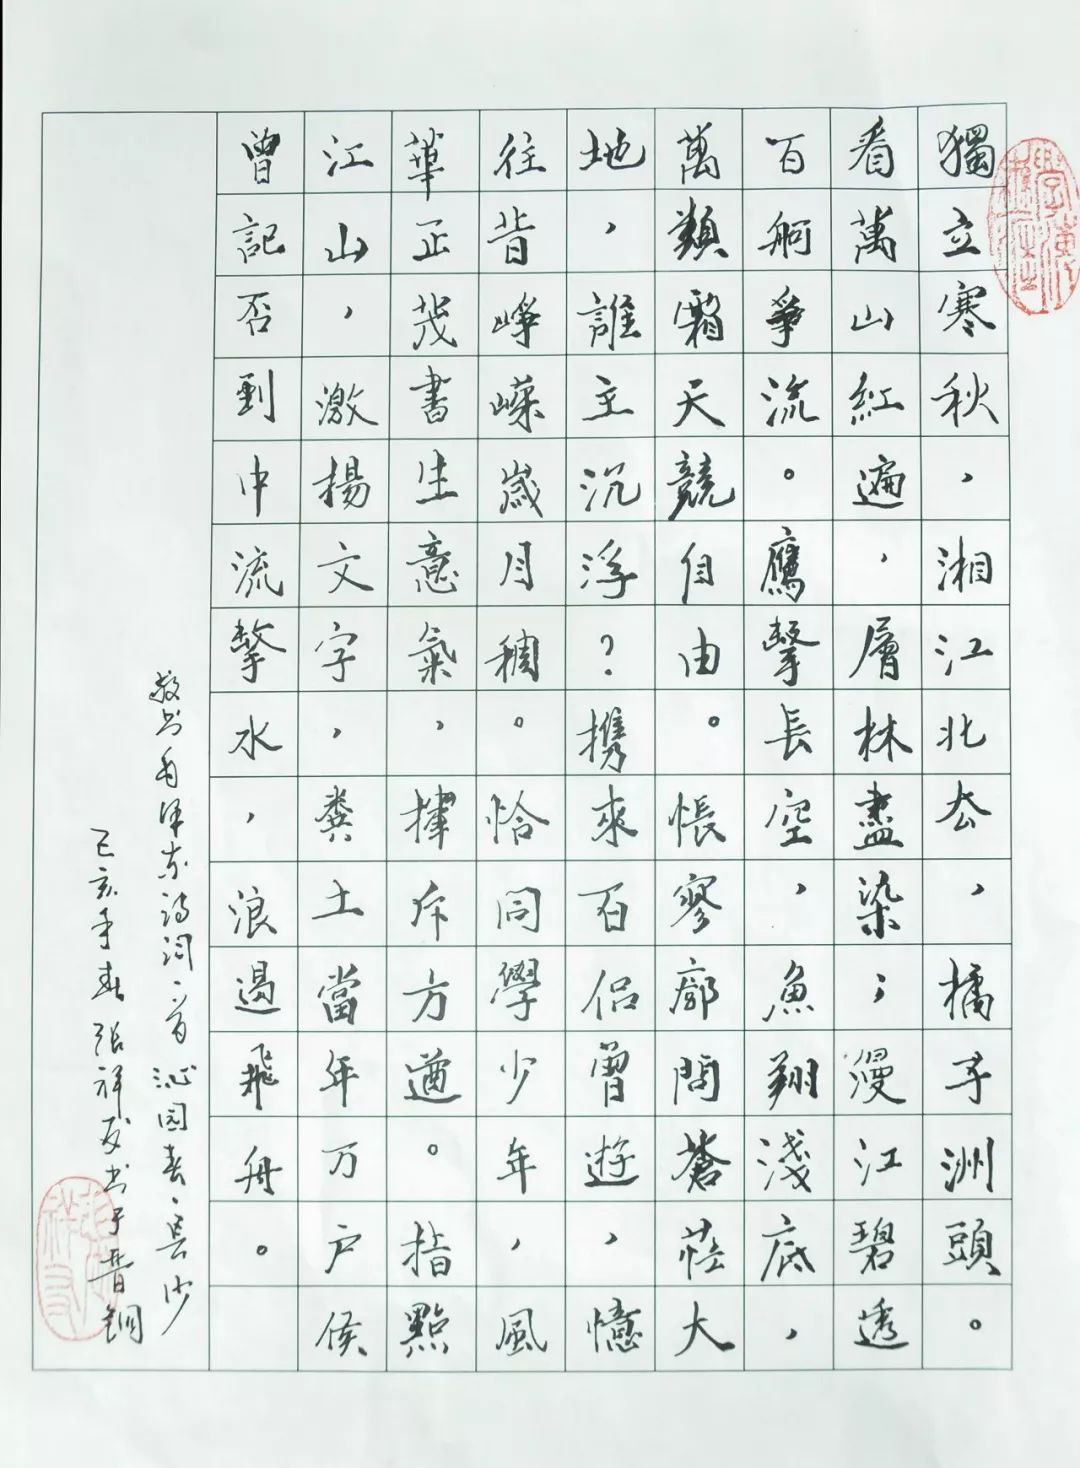 獨立寒秋，湘江北去，橘子洲頭。
看萬山紅遍，層林盡染；漫江碧透
百舸爭流。鷹擊長空，魚翔淺底，
萬類霜天競自由。悵寥廓問蒼茫大
地，誰主沉浮？携來百侶曾遊，憶
往昔崢嶸歲月稠。恰同學少年，風
華正茂書生意氣，揮斥方遒。指點
江山，激揚文字，糞土當年万户侯
曾記否到中流擊水，浪遏飛舟。
敬书毛泽东诗词一首 沁园春·長沙
己亥年春 张祥友书于晋铜